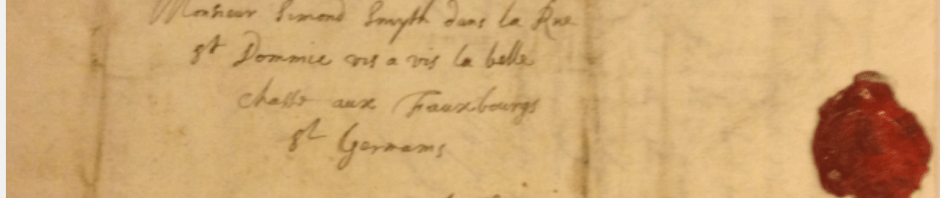 Monsieur Simond Smyth dans la Rue
St Dommic vis a vis la belle
chasse aux Fauxbourgs
St Germans